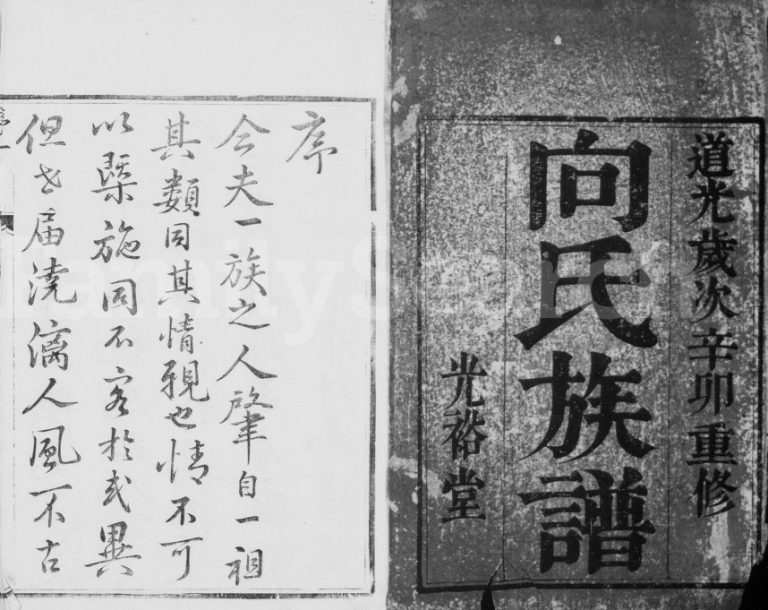 道光歲次辛卯重修
向氏族譜
光裕堂
序
今夫一族之人肇自一祖
其類同其情親也情不可
以槩施固不容於或異
但世屆澆漓人風不古
FamilySearch